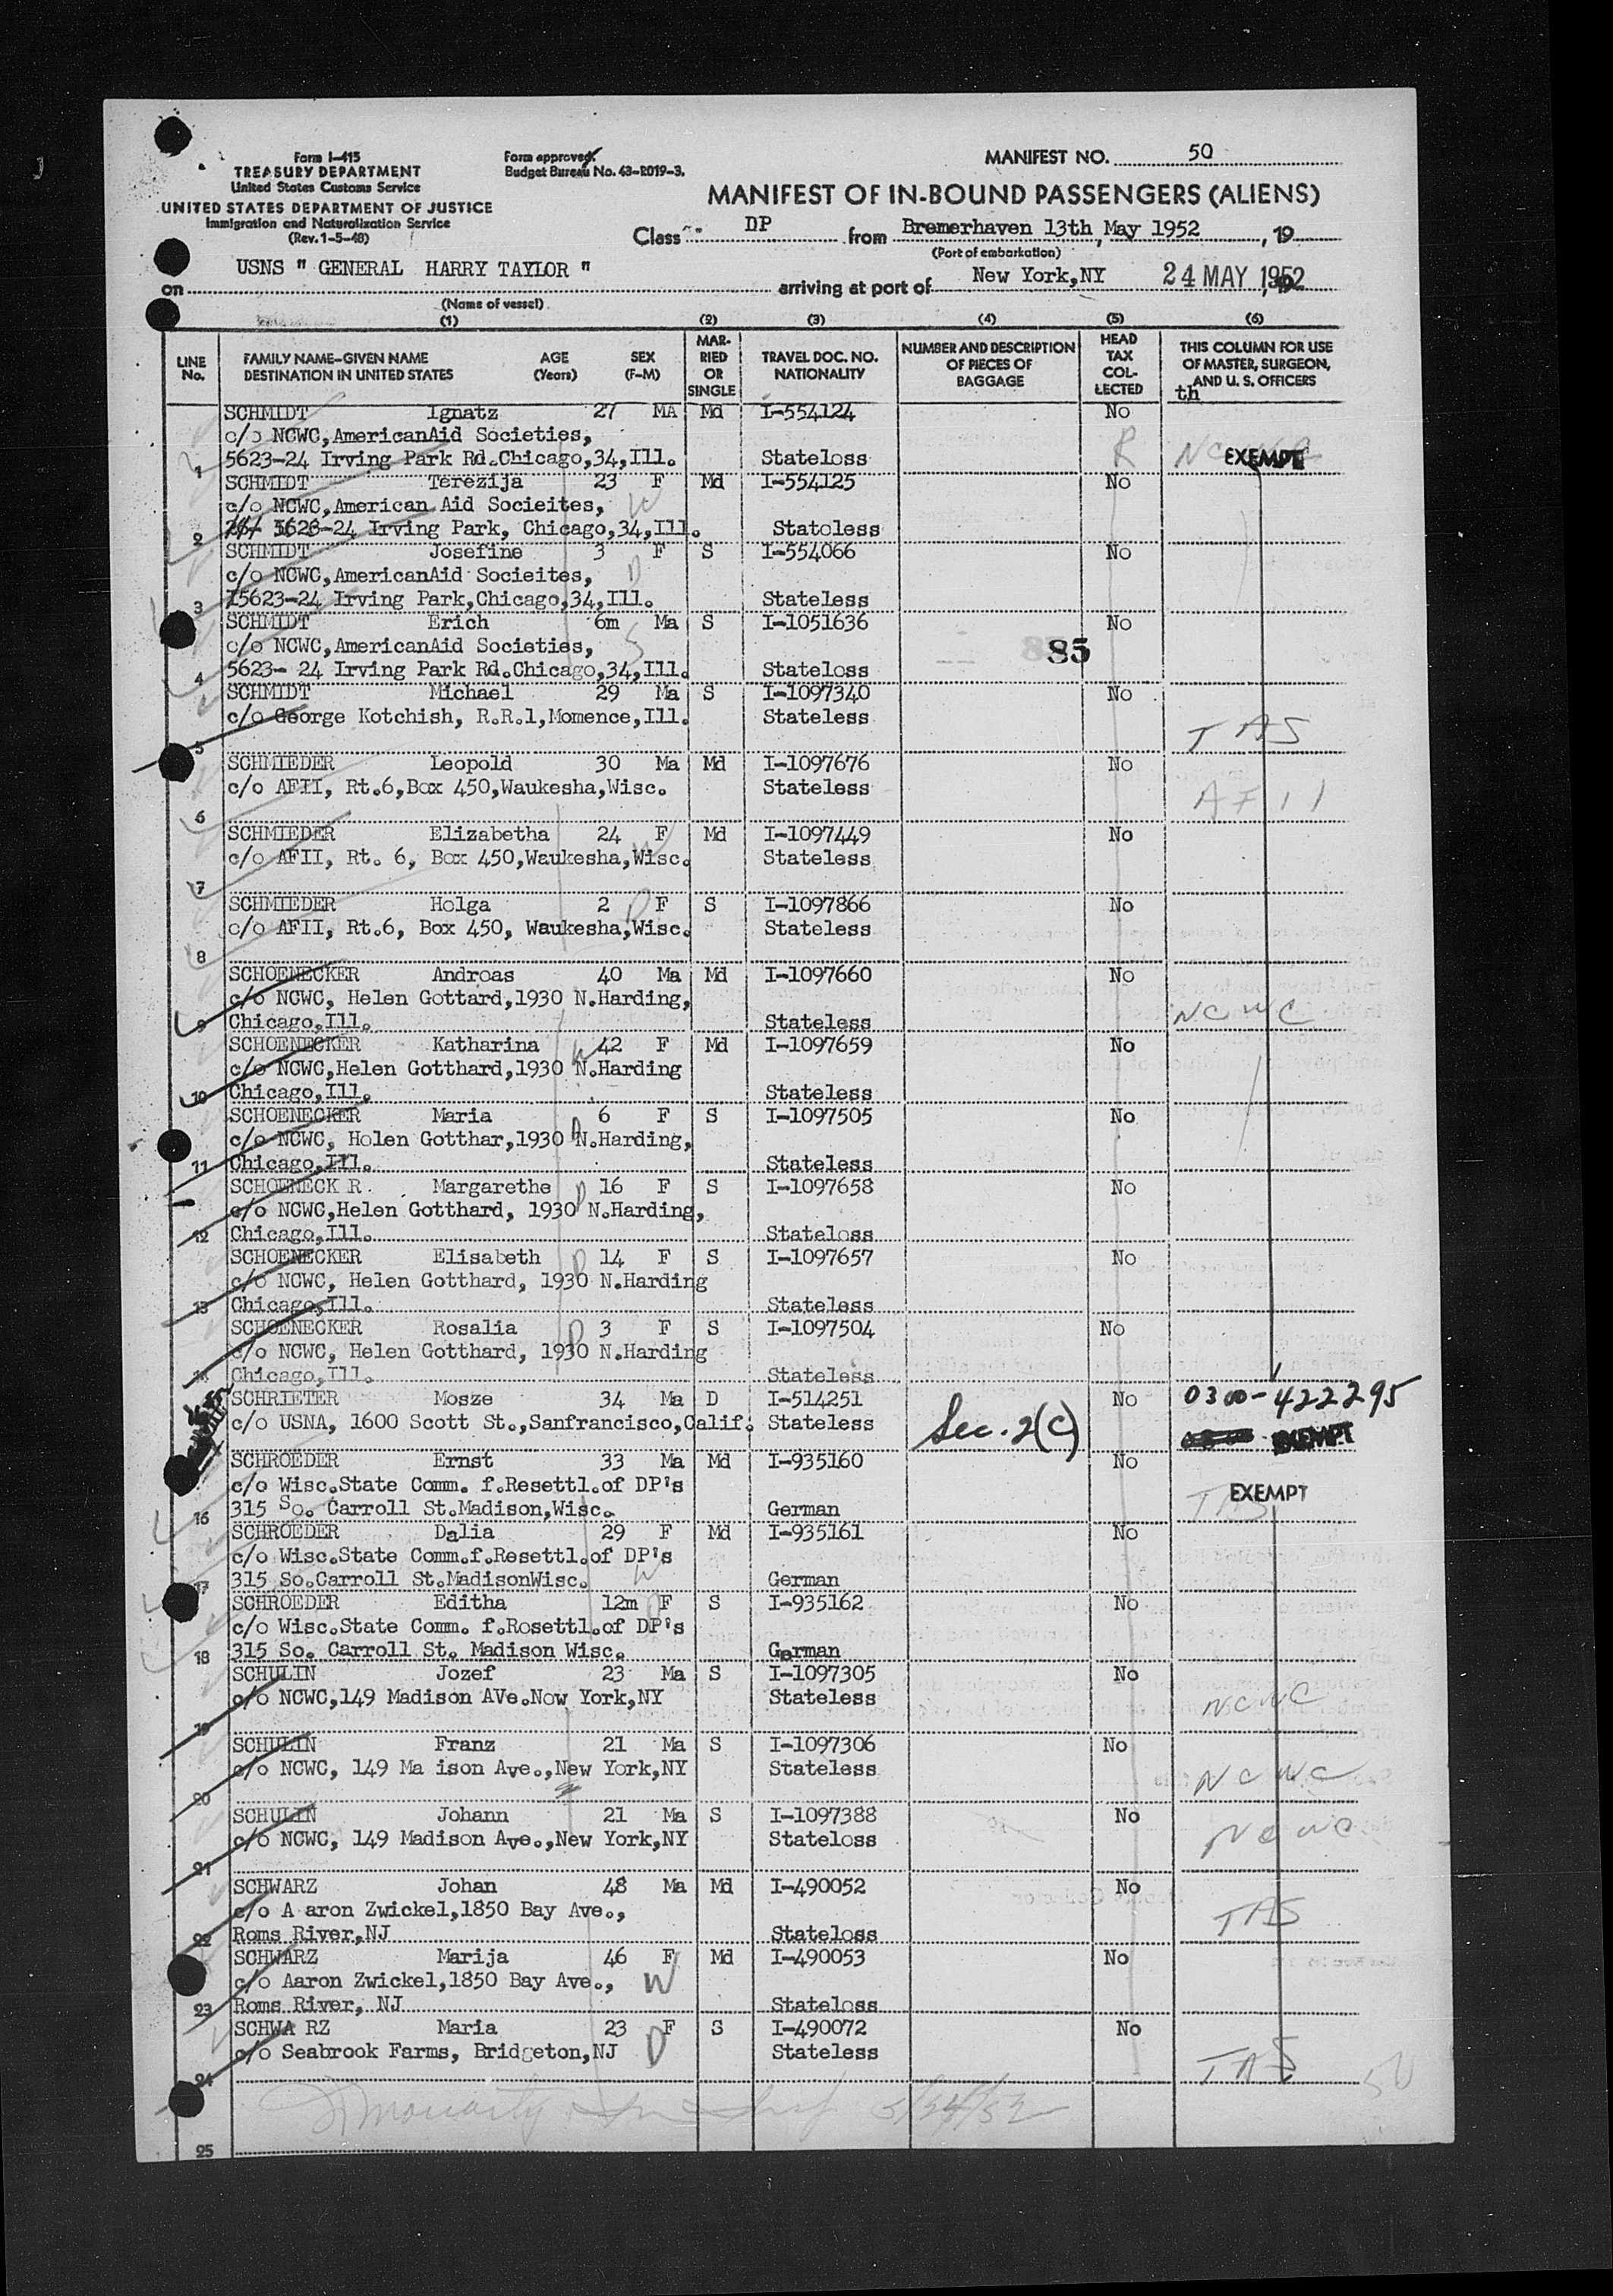 Form I-415
TREASURY DEPARTMENT
United States Customs Service
UNITED STATES DEPARTMENT OF JUSTICE
Immigration and Naturalization Service
(Rev. 1-5-48)
Form approved.
Budget Bureau No. 43-R019-3.
MANIFEST NO. 50
MANIFEST OF IN-BOUND PASSENGERS (ALIENS)
Class DP from Bremerhaven 13th, May 1952, 19
(Port of embarkation)
on USNS " GENERAL HARRY TAYLOR " arriving at port of New York,NY 24 MAY 1952
(Name of vessel)
(1) (2) (3) (4) (5) (6)
LINE No.
FAMILY NAME-GIVEN NAME DESTINATION IN UNITED STATES
AGE (Years)
SEX (F-M)
MARRIED OR SINGLE
TRAVEL DOC. NO. NATIONALITY
NUMBER AND DESCRIPTION OF PIECES OF BAGGAGE
HEAD TAX COLLECTED
THIS COLUMN FOR USE OF MASTER, SURGEON, AND U. S. OFFICERS
th
SCHMIDT Ignatz 27 MA Md I-554124 No
c/o NCWC,AmericanAid Societies,
1 5623-24 Irving Park Rd.Chicago,34,Ill. Stateloss R NCWC EXEMPT
SCHMIDT Terezija 23 F Md I-554125 No
c/o NCWC,American Aid Socieites, W
2 5623-24 Irving Park, Chicago,34,Ill. Statoless
SCHMIDT Josefine 3 F S I-554066 No
c/o NCWC,AmericanAid Socieites, D
3 15623-24 Irving Park,Chicago,34,Ill. Stateless
SCHMIDT Erich 6m Ma S I-1051636 No
c/o NCWC,AmericanAid Societies, S 85
4 5623- 24 Irving Park Rd.Chicago,34,Ill. Stateloss
SCHMIDT Michael 29 Ma S I-1097340 No
c/o George Kotchish, R.R.1,Momence,Ill. Stateless
5 TAS
SCHMIEDER Leopold 30 Ma Md I-1097676 No
c/o AFII, Rt.6,Box 450,Waukesha,Wisc. Stateless AFII
6
SCHMIEDER Elizabetha 24 F Md I-1097449 No
c/o AFII, Rt. 6, Box 450,Waukesha,Wisc. Stateless W
7
SCHMIEDER Holga 2 F S I-1097866 No
c/o AFII, Rt.6, Box 450, Waukesha,Wisc. Stateless D
8
SCHOENECKER Androas 40 Ma Md I-1097660 No
c/o NCWC, Helen Gottard,1930 N.Harding,
9 Chicago,Ill. Stateless NCWC
SCHOENECKER Katharina W 42 F Md I-1097659 No
c/o NCWC,Helen Gotthard,1930 N.Harding
10 Chicago,Ill. Stateless
SCHOENECKER Maria 6 F S I-1097505 No
c/o NCWC, Holen Gotthar,1930 N.Harding, D
11 Chicago,Ill. Stateless
SCHOENECK R. Margarethe D 16 F S I-1097658 No
c/o NCWC,Helen Gotthard, 1930 N.Harding,
12 Chicago,Ill. Stateloss
SCHOENECKER Elisabeth D 14 F S I-1097657 No
c/o NCWC, Helen Gotthard, 1930 N.Harding
13 Chicago,Ill. Stateless
SCHOENECKER Rosalia D 3 F S I-1097504 No
c/o NCWC, Helen Gotthard, 1930 N.Harding
14 Chicago,Ill. Stateless
SCHRIETER Mosze 34 Ma D I-514251 No 0300-422295
c/o USNA, 1600 Scott St.,Sanfrancisco,Calif. Stateless Sec. 2(c) EXEMPT
SCHROEDER Ernst 33 Ma Md I-935160 No
c/o Wisc.State Comm. f.Resettl.of DP's EXEMPT
16 315 So. Carroll St.Madison,Wisc. German TAS
SCHROEDER Dalia 29 F Md I-935161 No
c/o Wisc.State Comm.f.Resettl.of DP's
17 315 So.Carroll St.MadisonWisc. W German
SCHROEDER Editha 12m F S I-935162 No
c/o Wisc.State Comm. f.Rosettl.of DP's D
18 315 So. Carroll St. Madison Wisc. German
SCHULIN Jozef 23 Ma S I-1097305 No
c/o NCWC,149 Madison AVe.Now York,NY Stateless NCWC
19
SCHULIN Franz 21 Ma S I-1097306 No
c/o NCWC, 149 Ma ison Ave.,New York,NY Stateless NCWC
20
SCHULIN Johann 21 Ma S I-1097388 No
c/o NCWC, 149 Madison Ave.,New York,NY Stateloss NCWC
21
SCHWARZ Johan 48 Ma Md I-490052 No
c/o A aron Zwickel,1850 Bay Ave., TAS
22 Roms River,NJ Stateloss
SCHWARZ Marija 46 F Md I-490053 No
c/o Aaron Zwickel,1850 Bay Ave., W
23 Roms River, NJ Stateloss
SCHWA RZ Maria 23 F S I-490072 No
c/o Seabrook Farms, Bridgeton,NJ D Stateless
24 TAS 50
Moriarty 5/24/52
25